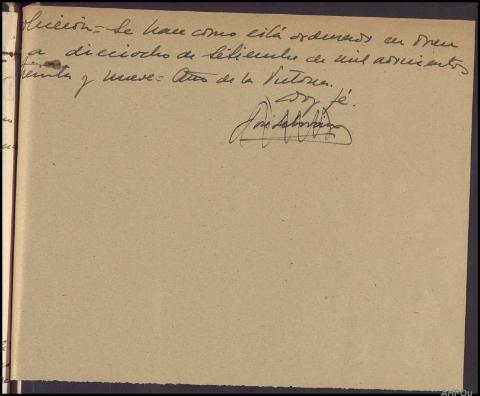 Se hace como está ordenado en Oren
a dieciocho de Setiembre de mil novecientos
treinta y nueve = Año de la Victoria.
Doy fé.
José
AHPOu